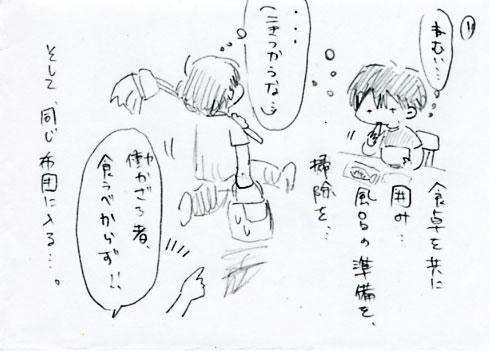 ⑪
ねむい…
食卓を共に
囲み…
風呂の準備を、
掃除を…
・・・・
(こきつかうな…)
働かざる者、
食うべからず!!
そして、同じ布団に入る…。